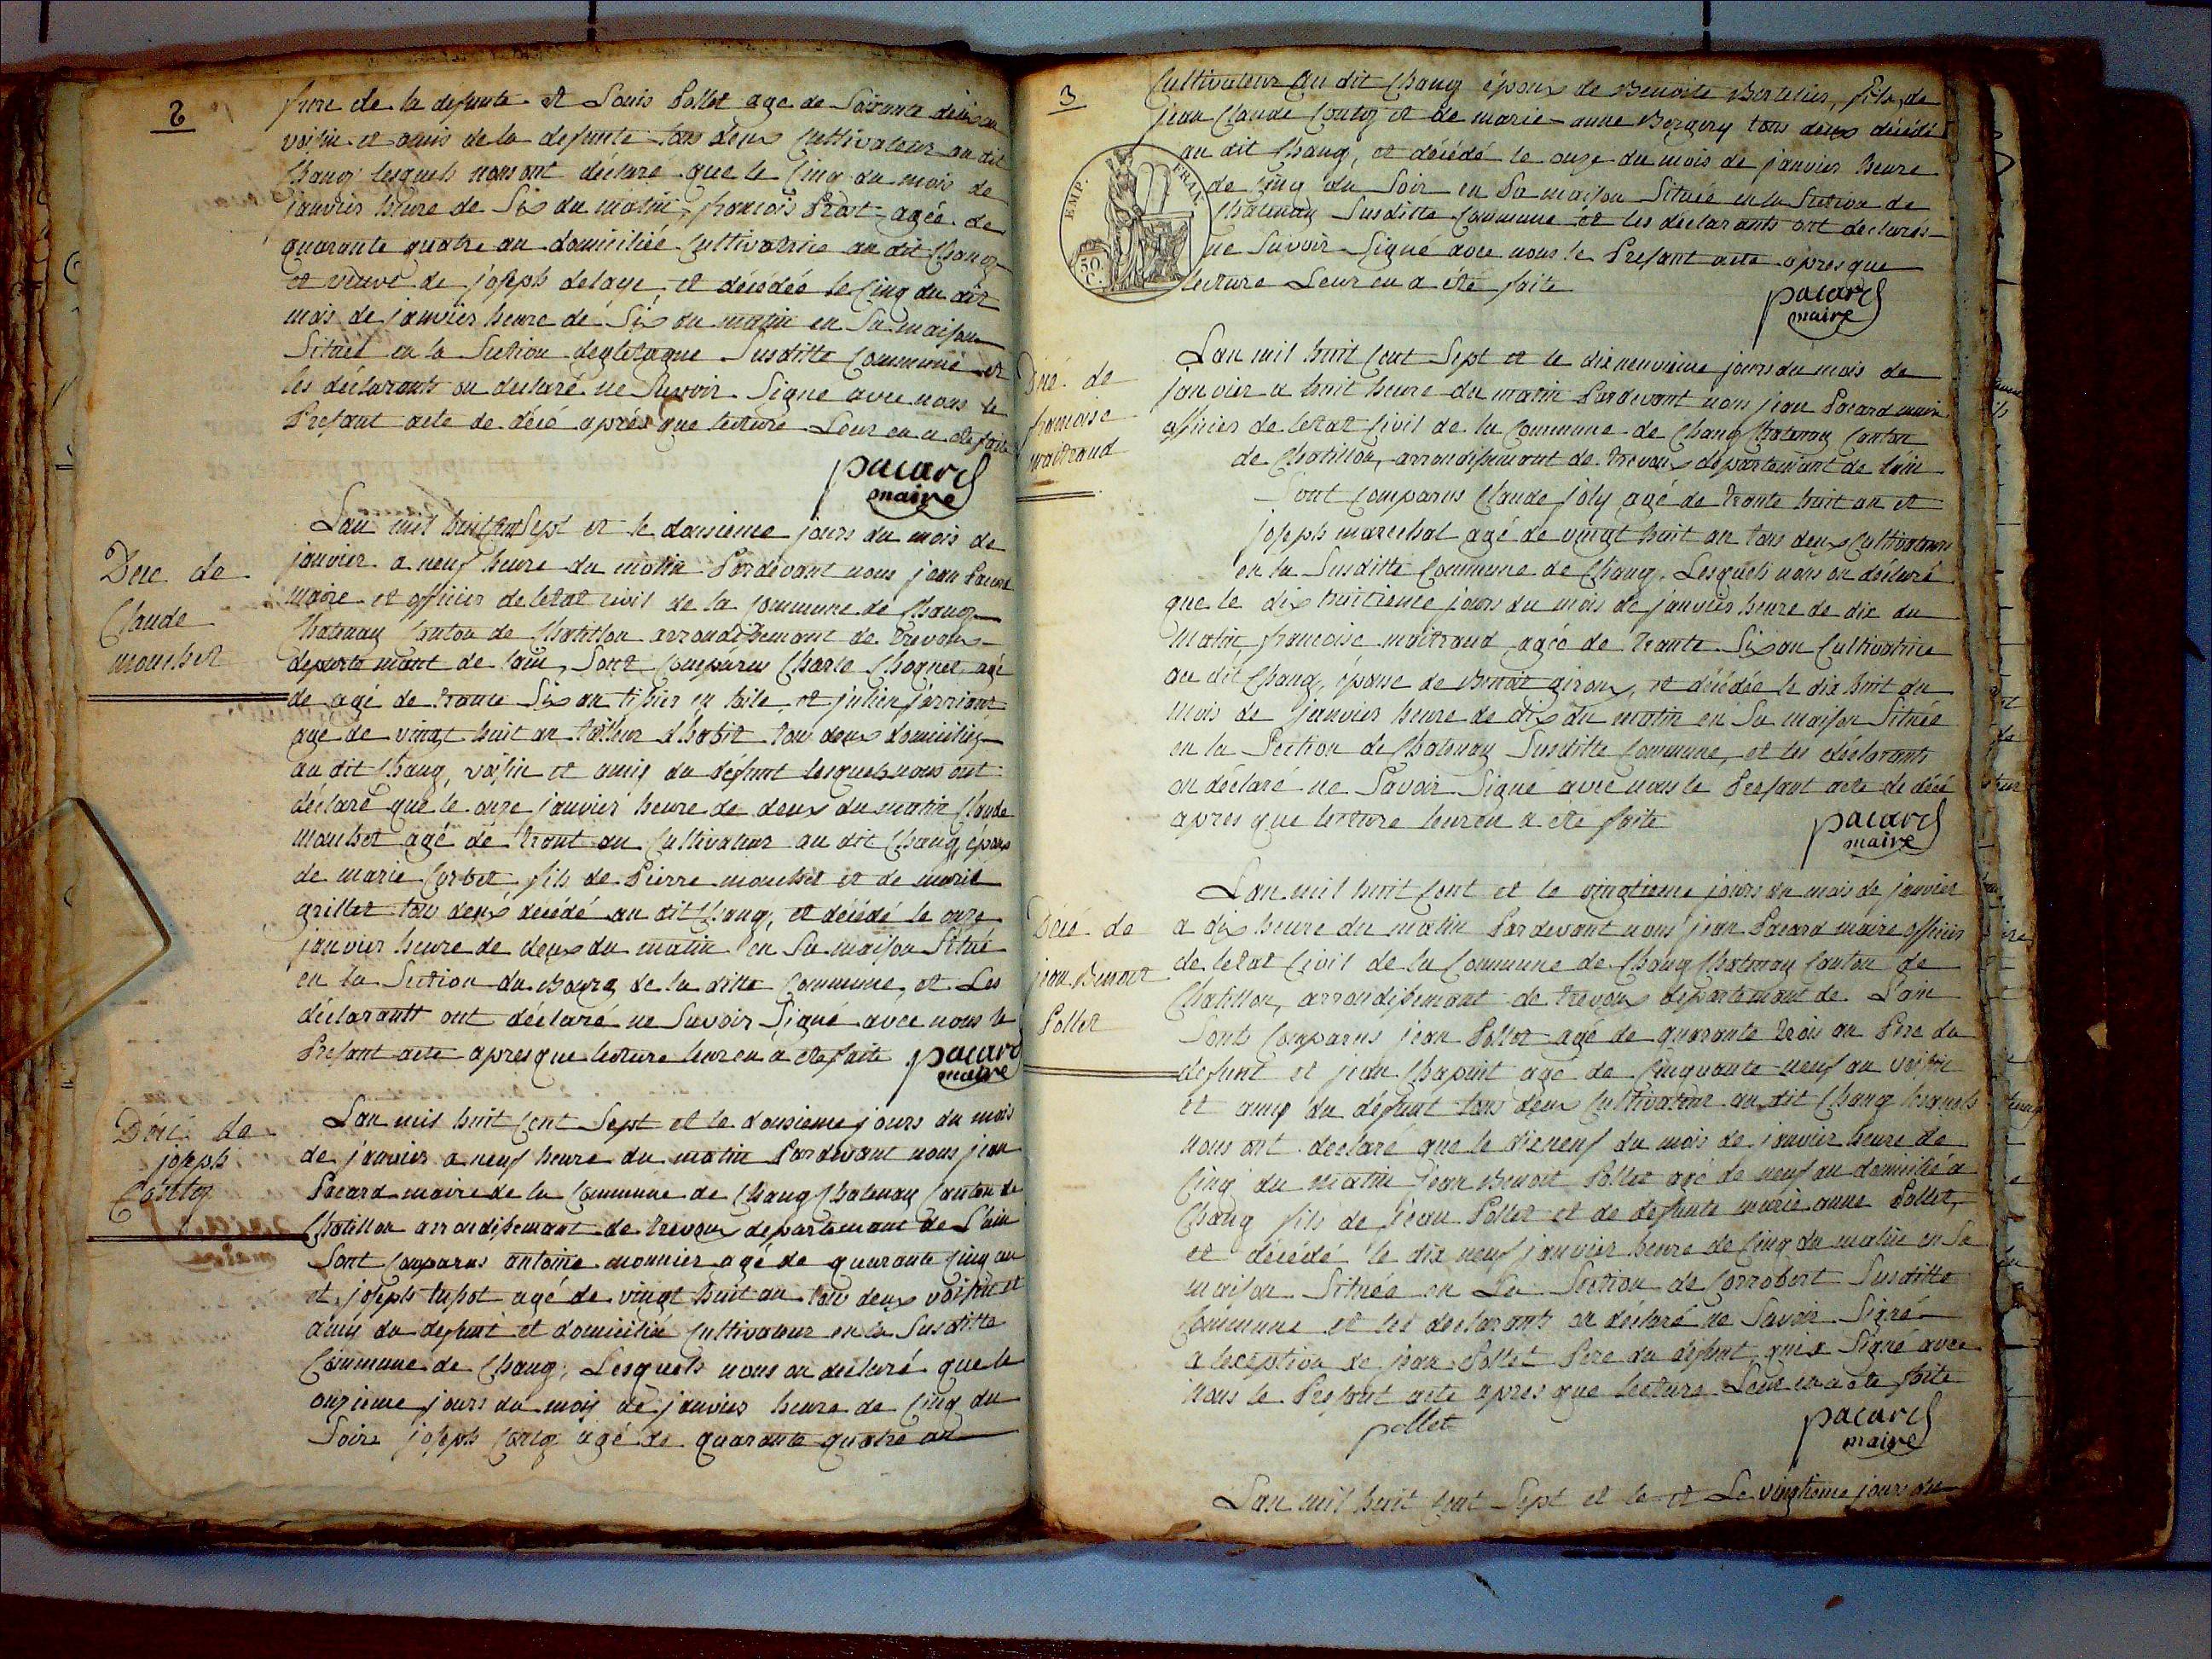 2
frere de la defunte et Louis Pollet age de Soixante deux an
voisin et amis de la defunte tous deux Cultivateur au dit
Chanoz lesquels nous ont déclaré que le Cinq du mois de
janvier heure de Six du matin, francois Prost agée de
quarante quatre an domiciliée Cultivatrice au dit Chanoz
et veuve de joseph delaye, et décédée le Cinq du dit
mois de janvier heure de Six du matin en Sa maison
Située en la Section Susditte Commune et
les déclarants on declaré ne Savoir Signe avec nous le
Presant acte de décé après que lecture Leur en a ete faite
pacard
maire
Déce de
Claude
mouchet
Lan mil huit Cent Sept et le dousieme jours du mois de
janvier a neuf heure du matin Pardevant nous jean Pacard
maire et officier de letat civil de la Commune de Chanoz
Chatenay Canton de Chatillon arrondisement de trevoux
departemant de lain, Sont Comparus Charle Chognet, agé
de agé de trante Six an tisier en toile, et julien jarriant
age de vingt huit an tailleur d'habit tous deux domiciliez
au dit Chanoz, voisin et amis du defunt lesquels nous ont
déclaré que le onze janvier heure de deux du matin Claude
mouchet agé de trant an Cultivateur au dit Chanoz, époux
de marie Corbet, fils de Pierre mouchet et de marie
grillet tous deux décédé au dit Chanoz, et décédé le onze
janvier heure de deux du matin en Sa maison Situé
en la Section du Bourg de la ditte Commune, et Les
déclarants ont déclaré ne Savoir Signé avec nous le
Presant acte apres que lecture leur en a ete faite pacard
maire
Décé de
joseph
Lan mil huit Cent Sept et le dousieme jours du mois
de janvier a neuf heure du matin Pardevant nous jean
Pacard maire de la Commune de Chanoz Chatenay Canton de
Chatillon arrondisemant de trevoux departemant de Lain
Sont Comparus antoine monnier agé de quarante Cinq an
et joseph agé de vingt huit an tous deux voisin et
amis du defunt et domicilié Cultivateur en la Susditte
Commune de Chanoz, Lesquels nous on declaré que le
onzieme jours du mois de janvier heure de Cinq du
Soire joseph agé de quarante quatre an
3
Cultivateur au dit Chanoz époux de Benoite Bertelier, fils de
jean Claude et de marie-anne Bergery tous deux décédé
au dit Chanoz, et décédé le onze du mois de janvier heure
de Cinq du Soir en Sa maison Située en la Section de
Chatenay Susditte Commune et les déclarants ont declarés
ne Savoir Signé avec nous le Presant acte apres que
lecture Leur en a été faite
EMP. FRAN.
50 C.
pacard
maire
Décé de
francoise
maitraud
Lan mil huit Cent Sept et le dix neuvieme jours du mois de
janvier a huit heure du matin Pardevant nous jean Pacard maire
officier de letat Civil de la Commune de Chanoz Chatenay Canton
de Chatillon, arrondisemant de trevoux departemant de lain
Sont Comparus Claude joly agé de trante huit an et
joseph marechal agé de vingt huit an tous deux Cultivateurs
en la Susditte Commune de Chanoz. Lesquels nous on déclaré
que le dix huitieme jours du mois de janvier heure de dix du
matin, francoise maitraud, agée de trante Six an Cultivatrice
au dit Chanoz, épouse de Benoit giroux, et décédée le dix huit du
mois de janvier heure de dix du matin en Sa maison Située
en la Section de Chatenay Susditte Commune, et les déclarants
on déclaré ne Savoir Signé avec nous le Presant acte de décé
apres que lecture leur en a ete faite
pacard
maire
Décé de
jean Benoit
Pollet
Lan mil huit Cent et le vingtieme jours du mois de janvier
a dix heure du matin Pardevant nous jean Pacard maire officier
de letat Civil de la Commune de Chanoz Chatenay Canton de
Chatillon, arrondisemant de trevoux departemant de Lain
Sont Comparus jean Pollet agé de quarante trois an Pere du
defunt et jean Chapuit age de Cinquante neuf an voisin
et amis du défunt tous deux Cultivateur au dit Chanoz lesquels
nous ont declaré que le dixneuf du mois de janvier heure de
Cinq du matin jean Benoit Pollet agé de neuf an domicilié a
Chanoz fils de jean Pollet et de defunte marie anne Pollet,
et décédé le dix neuf janvier heure de Cinq du matin en Sa
maison Située en La Section de Corrobert Susditte
Commune et les declarants on déclaré ne Savoir Signé
a lexeption de jean Pollet Pere du défunt qui a Signé avec
nous le Presant acte apres que lecture Leur en a ete faite
pollet
pacard
maire
Lan mil huit Cent Sept et le et Le vingtieme jours du